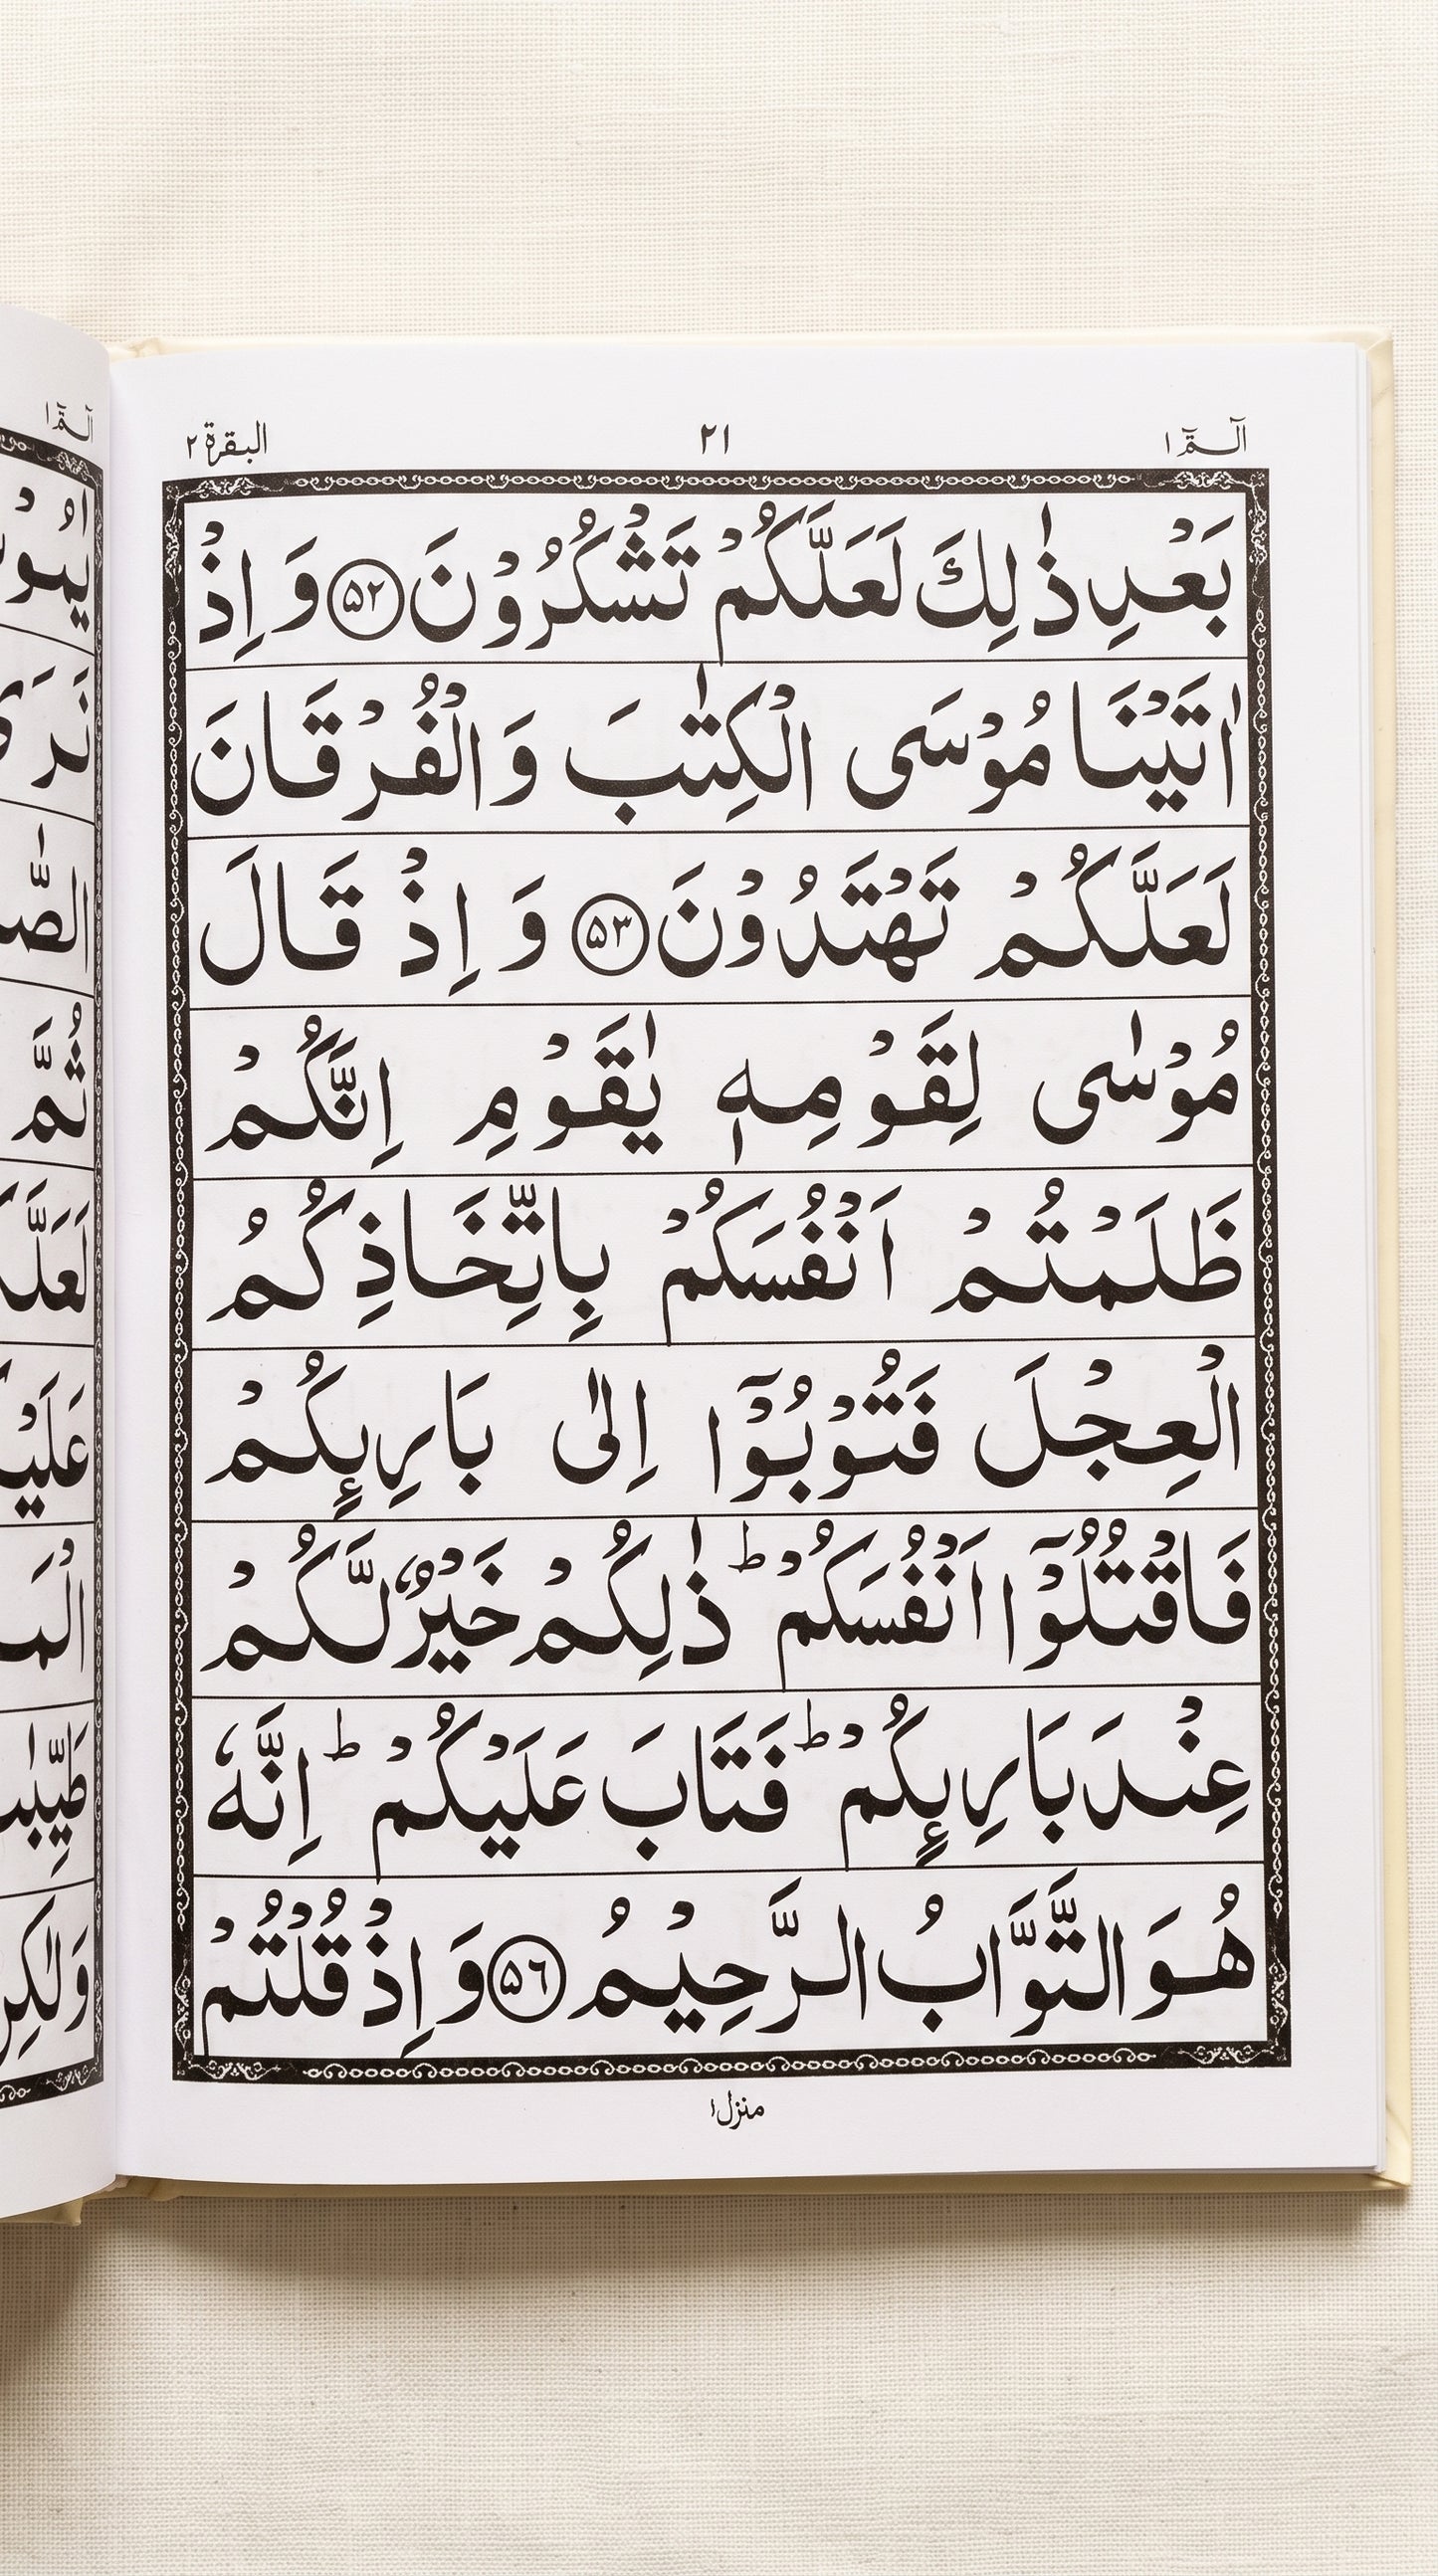 الٓـمّٓ ١ ٢١ البقرة ٢
بَعْدِ ذٰلِكَ لَعَلَّكُمْ تَشْكُرُوْنَ ﴿۵۲﴾ وَ اِذْ
اٰتَيْنَا مُوْسَى الْكِتٰبَ وَ الْفُرْقَانَ
لَعَلَّكُمْ تَهْتَدُوْنَ ﴿۵۳﴾ وَ اِذْ قَالَ
مُوْسٰى لِقَوْمِهٖ يٰقَوْمِ اِنَّكُمْ
ظَلَمْتُمْ اَنْفُسَكُمْ بِاتِّخَاذِكُمُ
الْعِجْلَ فَتُوْبُوْٓا اِلٰى بَارِىِٕكُمْ
فَاقْتُلُوْٓا اَنْفُسَكُمْ ؕ ذٰلِكُمْ خَيْرٌ لَّكُمْ
عِنْدَ بَارِىِٕكُمْ ؕ فَتَابَ عَلَيْكُمْ ؕ اِنَّهٗ
هُوَ التَّوَّابُ الرَّحِيْمُ ﴿۵۶﴾ وَ اِذْ قُلْتُمْ
منزل ١
الٓمّٓ ١
نَرَى
ثُمَّ